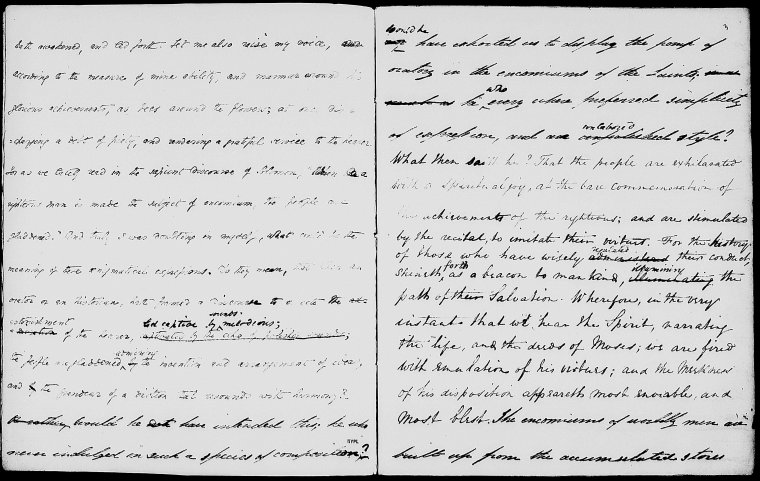 both awakened, and led forth. Let me also raise my voice, and
according to the measure of mine ability, and murmur around the
glorious achievements, as bees around the flowers; at once dis-
charging a debt of piety, and rendering a grateful service to the hearer
For as we lately read in the sapient discourse of Solomon, "When a
righteous man is made the subject of encomium, the people are
gladdened." And truly I was doubting in myself, what could be the
meaning of this enigmatical expression. Is they mean, that when an
orator or an historian, hath formed a discourse to the
astonishment
of the hearer, captivated by the
led captive by melodious;
sounds:
the people are gladdened, by the invention and arrangement of ideas;
admiring
and the grandeur of a diction that resounds with harmony?
would he have intended this; he who
never indulged in such a species of composition?
3
would he
have exhorted us to display the pomp of
oratory in the encomiums of the Saints;
he every where preferred simplicity
who
of expression, and an unpolished style?
unlaboured
What then saith he? That the people are exhilarated
with a spiritual joy, at the bare commemoration of
the achievements of the righteous; and are stimulated
by the recital, to imitate their virtues. For the history
of those who have wisely administered their conduct,
regulated
shineth forth as a beacon to mankind, illuminating the
illumining
path of their Salvation. Wherefore, in the very
instant that we hear the Spirit, narrating
the life, and the deeds of Moses; we are fired
with emulation of his virtues; and the Meekness
of his disposition appeareth most enviable, and
most blest. The encomiums of worldly men are
built up from the accumulated stores